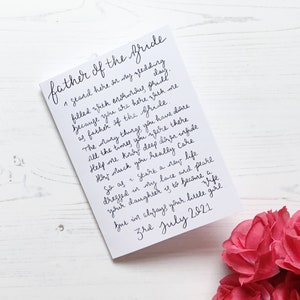 father of the Bride
I stand here on my wedding day
filled with enormous pride
because you are here with me
as father of the Bride.
The many things you have done
all the times you were there
Help me know deep down inside
How much you really care
So as I start a new life
dressed in my lace and pearls
your daughter is to become a wife
But im always your little girl
3rd July 2021